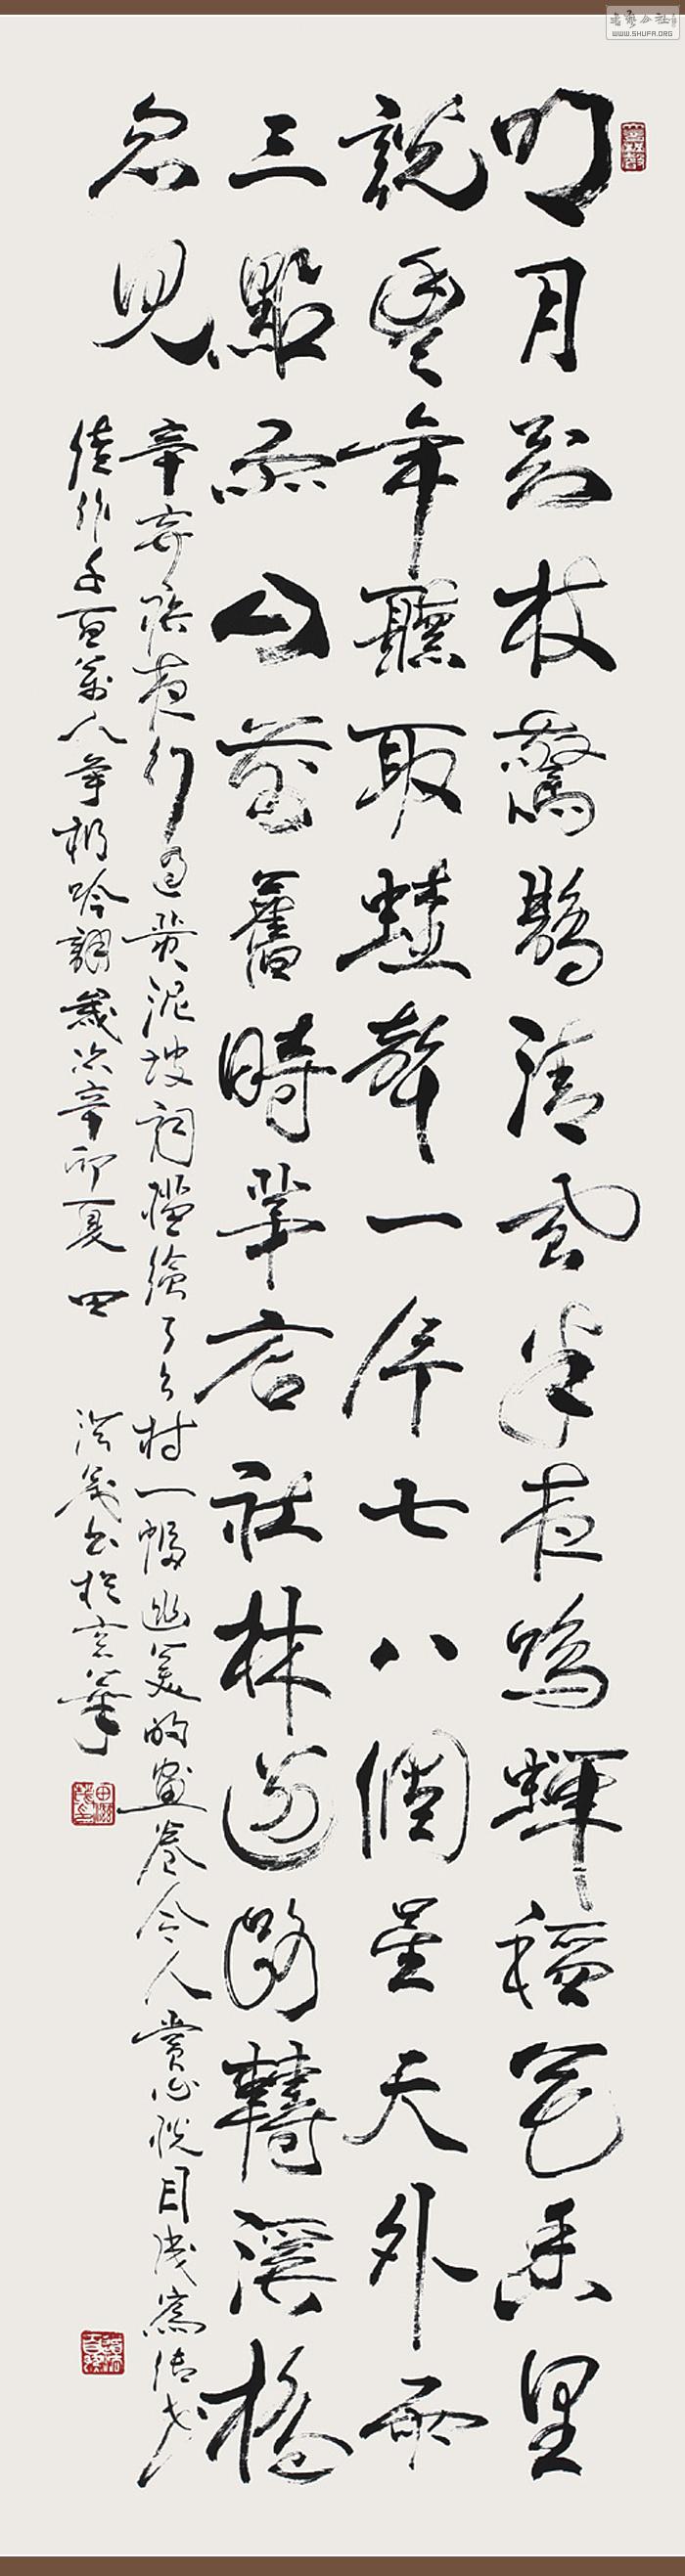 明月别枝驚鵲清風半夜鳴蟬稻花香里
說豐年聽取蛙聲一片七八個星天外兩
三點雨山前舊時茅店社林邊路轉溪橋
忽見
辛弃疾夜行過黄泥坡詞描繪了乡村一幅幽美的畫卷令人賞心悦目传世
佳作千百萬人爭相吟誦歲次辛卯夏 田
書於京華
WWW.SHUFA.ORG